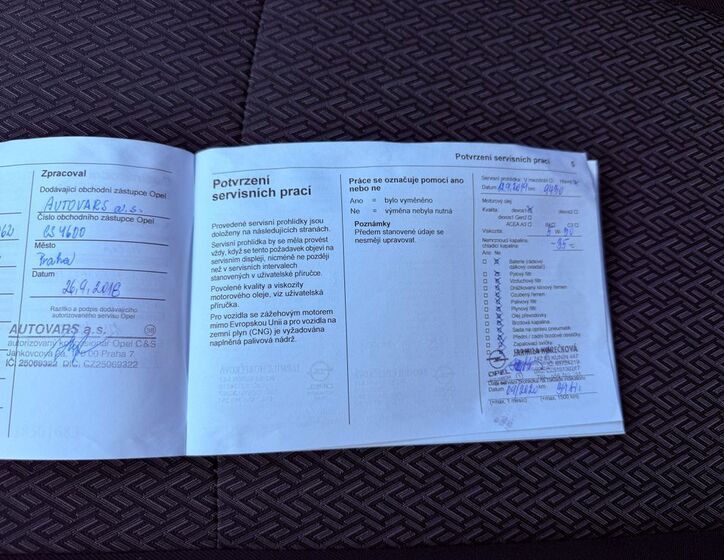 Zpracoval
Dodávající obchodní zástupce Opel
AUTOVARS a.s.
Číslo obchodního zástupce Opel
CS 4600
Město
Praha
Datum
26.9.2018
Razítko a podpis dodávajícího
autorizovaného servisu Opel
AUTOVARS a.s.
autorizovaný Opel C&S
Jankovcova 00 Praha 7
IČ: 25069322 DIČ: CZ25069322
Potvrzení
servisních prací
Provedené servisní prohlídky jsou
doloženy na následujících stránách.
Servisní prohlídka by se měla provést
vždy, když se tento požadavek objeví na
servisním displeji, nicméně ne později
než v servisních intervalech
stanovených v uživatelské příručce.
Povolené kvality a viskozity
motorového oleje, viz uživatelská
příručka.
Pro vozidla se zážehovým motorem
mimo Evropskou Unii a pro vozidla na
zemní plyn (CNG) je vyžadována
naplněná palivová nádrž.
Práce se označuje pomocí ano
nebo ne
Ano = bylo vyměněno
Ne = výměna nebyla nutná
Poznámky
Předem stanovené údaje se
nesmějí upravovat.
Potvrzení servisních prací 5
Servisní prohlídka: V mezidobí Hlavní
Datum km
Motorový olej
Kvalita dexos1 dexos2
dexos1 Gen2
ACEA A3
Viskozita
Nemrznoucí kapalina,
chladicí kapalina -35
Ano Ne
Baterie (rádiový
dálkový ovladač)
Pylový filtr
Vzduchový filtr
Drážkový klínový řemen
Ozubený řemen
Palivový filtr
Plynový filtr
Olej převodovky
Brzdová kapalina
Sada na opravu pneumatik
Přední / zadní brzdové destičky
Zapalovací svíčky
OPEL
Datum km
(+max. 1 měsíc) (+max. 1500 km)